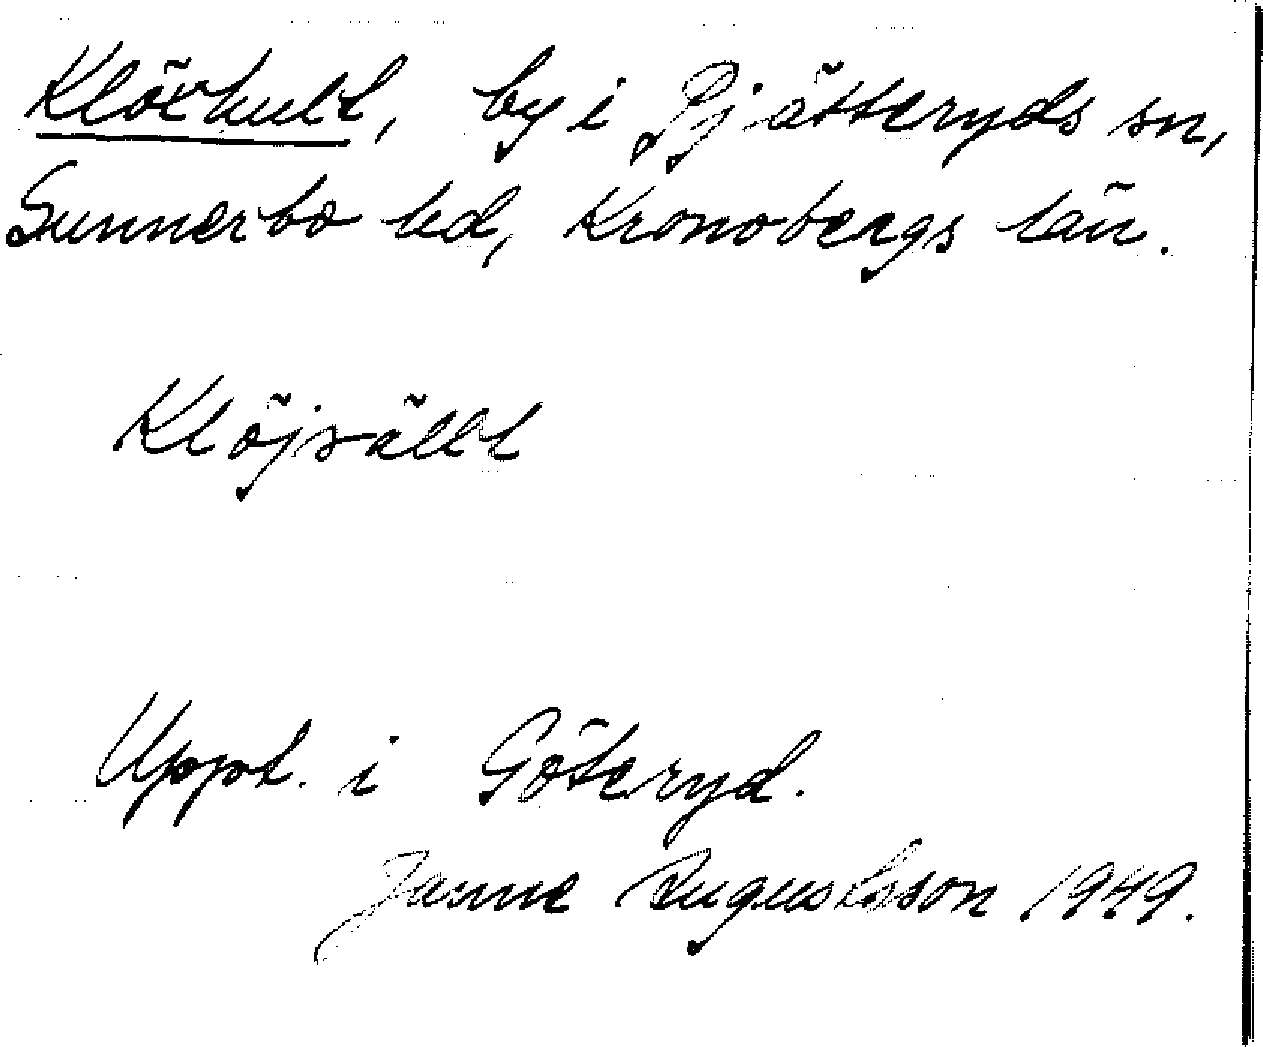 Klövhult, by i Pjätteryds sn,
Sunnerbo hd, Kronobergs län.
Klöjsällt
Uppt. i Göteryd.
Janne Augustsson 1949.